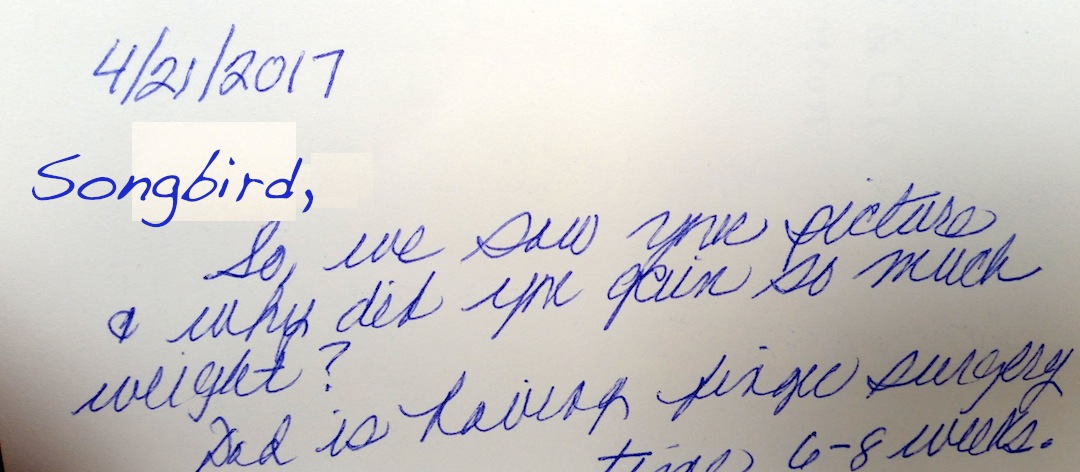 4/21/2017
Songbird,
So, we saw your picture
& why did you gain so much
weight?
Dad is having finger surgery
time 6-8 weeks.